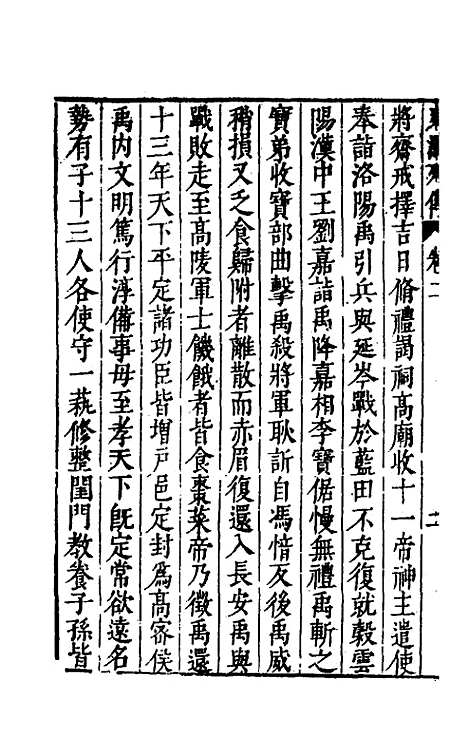 將齋戒擇吉日脩禮謁祠高廟收十一帝神主遣使
奉詣洛陽禹引兵與延岑戰於藍田不克復就穀雲
陽漢中王劉嘉詣禹降嘉相李寶倨慢無禮禹斬之
寶弟收寶部曲擊禹殺將軍耿訢自馮愔反後禹威
稍損又乏食歸附者離散而赤眉復還入長安禹與
戰敗走至高陵軍士饑餓者皆食棗菜帝乃徵禹還
十三年天下平定諸功臣皆增戶邑定封爲高密侯
禹內文明篤行淳備事母至孝天下旣定常欲遠名
勢有子十三人各使守一藝修整閨門教養子孫皆